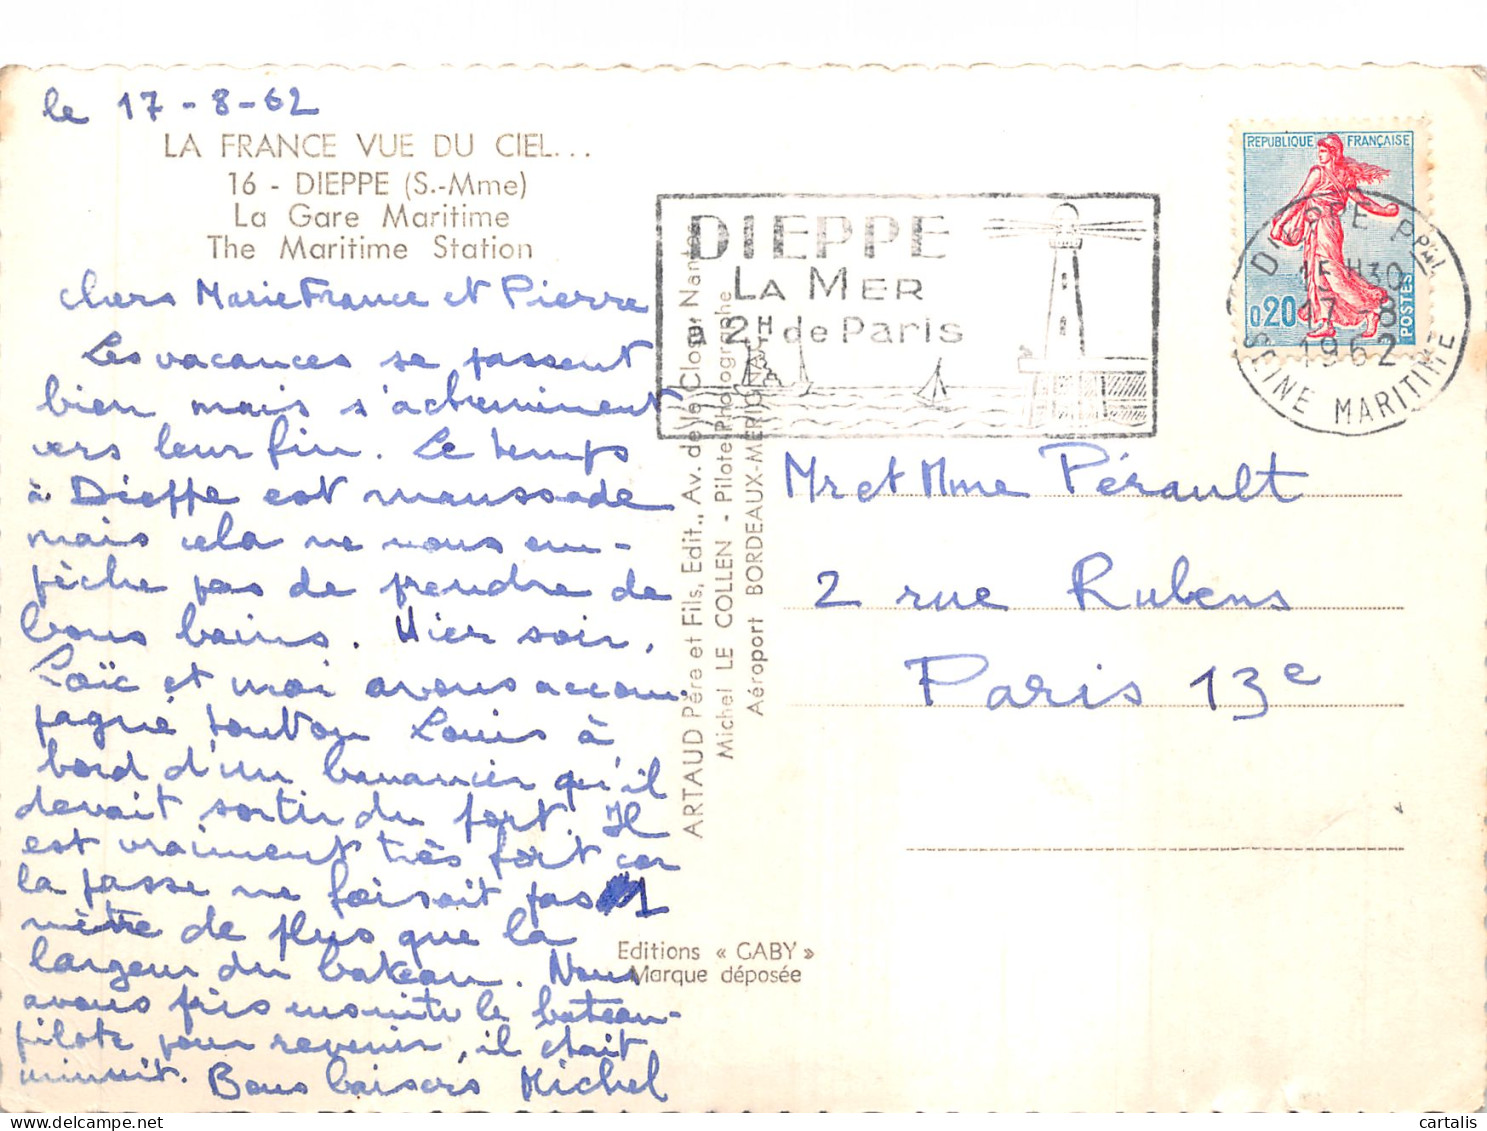 le 17-8-62
LA FRANCE VUE DU CIEL...
16 - DIEPPE (S.-Mme)
La Gare Maritime
The Maritime Station
chers Marie France et Pierre
Les vacances se passent
bien mais s'acheminent
vers leur fin. Le temps
à Dieppe est maussade
mais cela ne nous em-
pêche pas de prendre de
bons bains. Hier soir,
Loïc et moi avons accom-
pagné tonton Louis à
bord d'un bananier qu'il
devait sortir du port. Il
est vraiment très fort car
la passe ne faisait pas 1
mètre de plus que la
largeur du bateau. Nous
avons pris ensuite le bateau-
pilote pour revenir, il était
minuit. Bons baisers Michel
ARTAUD Père et Fils, Edit., Av. de la Close, Nantes
Michel LE COLLEN - Pilote Photographe
Aéroport BORDEAUX-MERIGNAC
Editions « GABY »
Marque déposée
DIEPPE
LA MER
à 2H de Paris
REPUBLIQUE FRANÇAISE
0,20
POSTES
DIEPPE PPAL
15H30
17-8
1962
SEINE MARITIME
Mr et Mme Pérault
2 rue Rubens
Paris 13e
cartalis